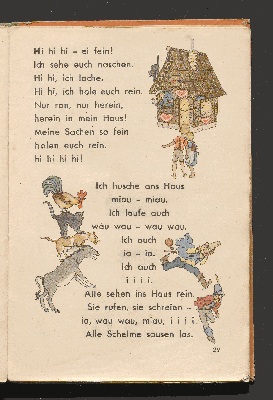 Hi hi hi – ei fein!
Ich sehe euch naschen.
Hi hi, ich lache.
Hi hi, ich hole euch rein.
Nur ran, nur herein,
herein in mein Haus!
Meine Sachen so fein
holen euch rein.
hi hi hi hi!
Ich husche ans Haus
miau – miau.
Ich laufe auch
wau wau – wau wau.
Ich auch
ia – ia.
Ich auch
i i i i.
Alle sehen ins Haus rein.
Sie rufen, sie schreien –
ia, wau wau, miau, i i i i.
Alle Schelme sausen los.
29